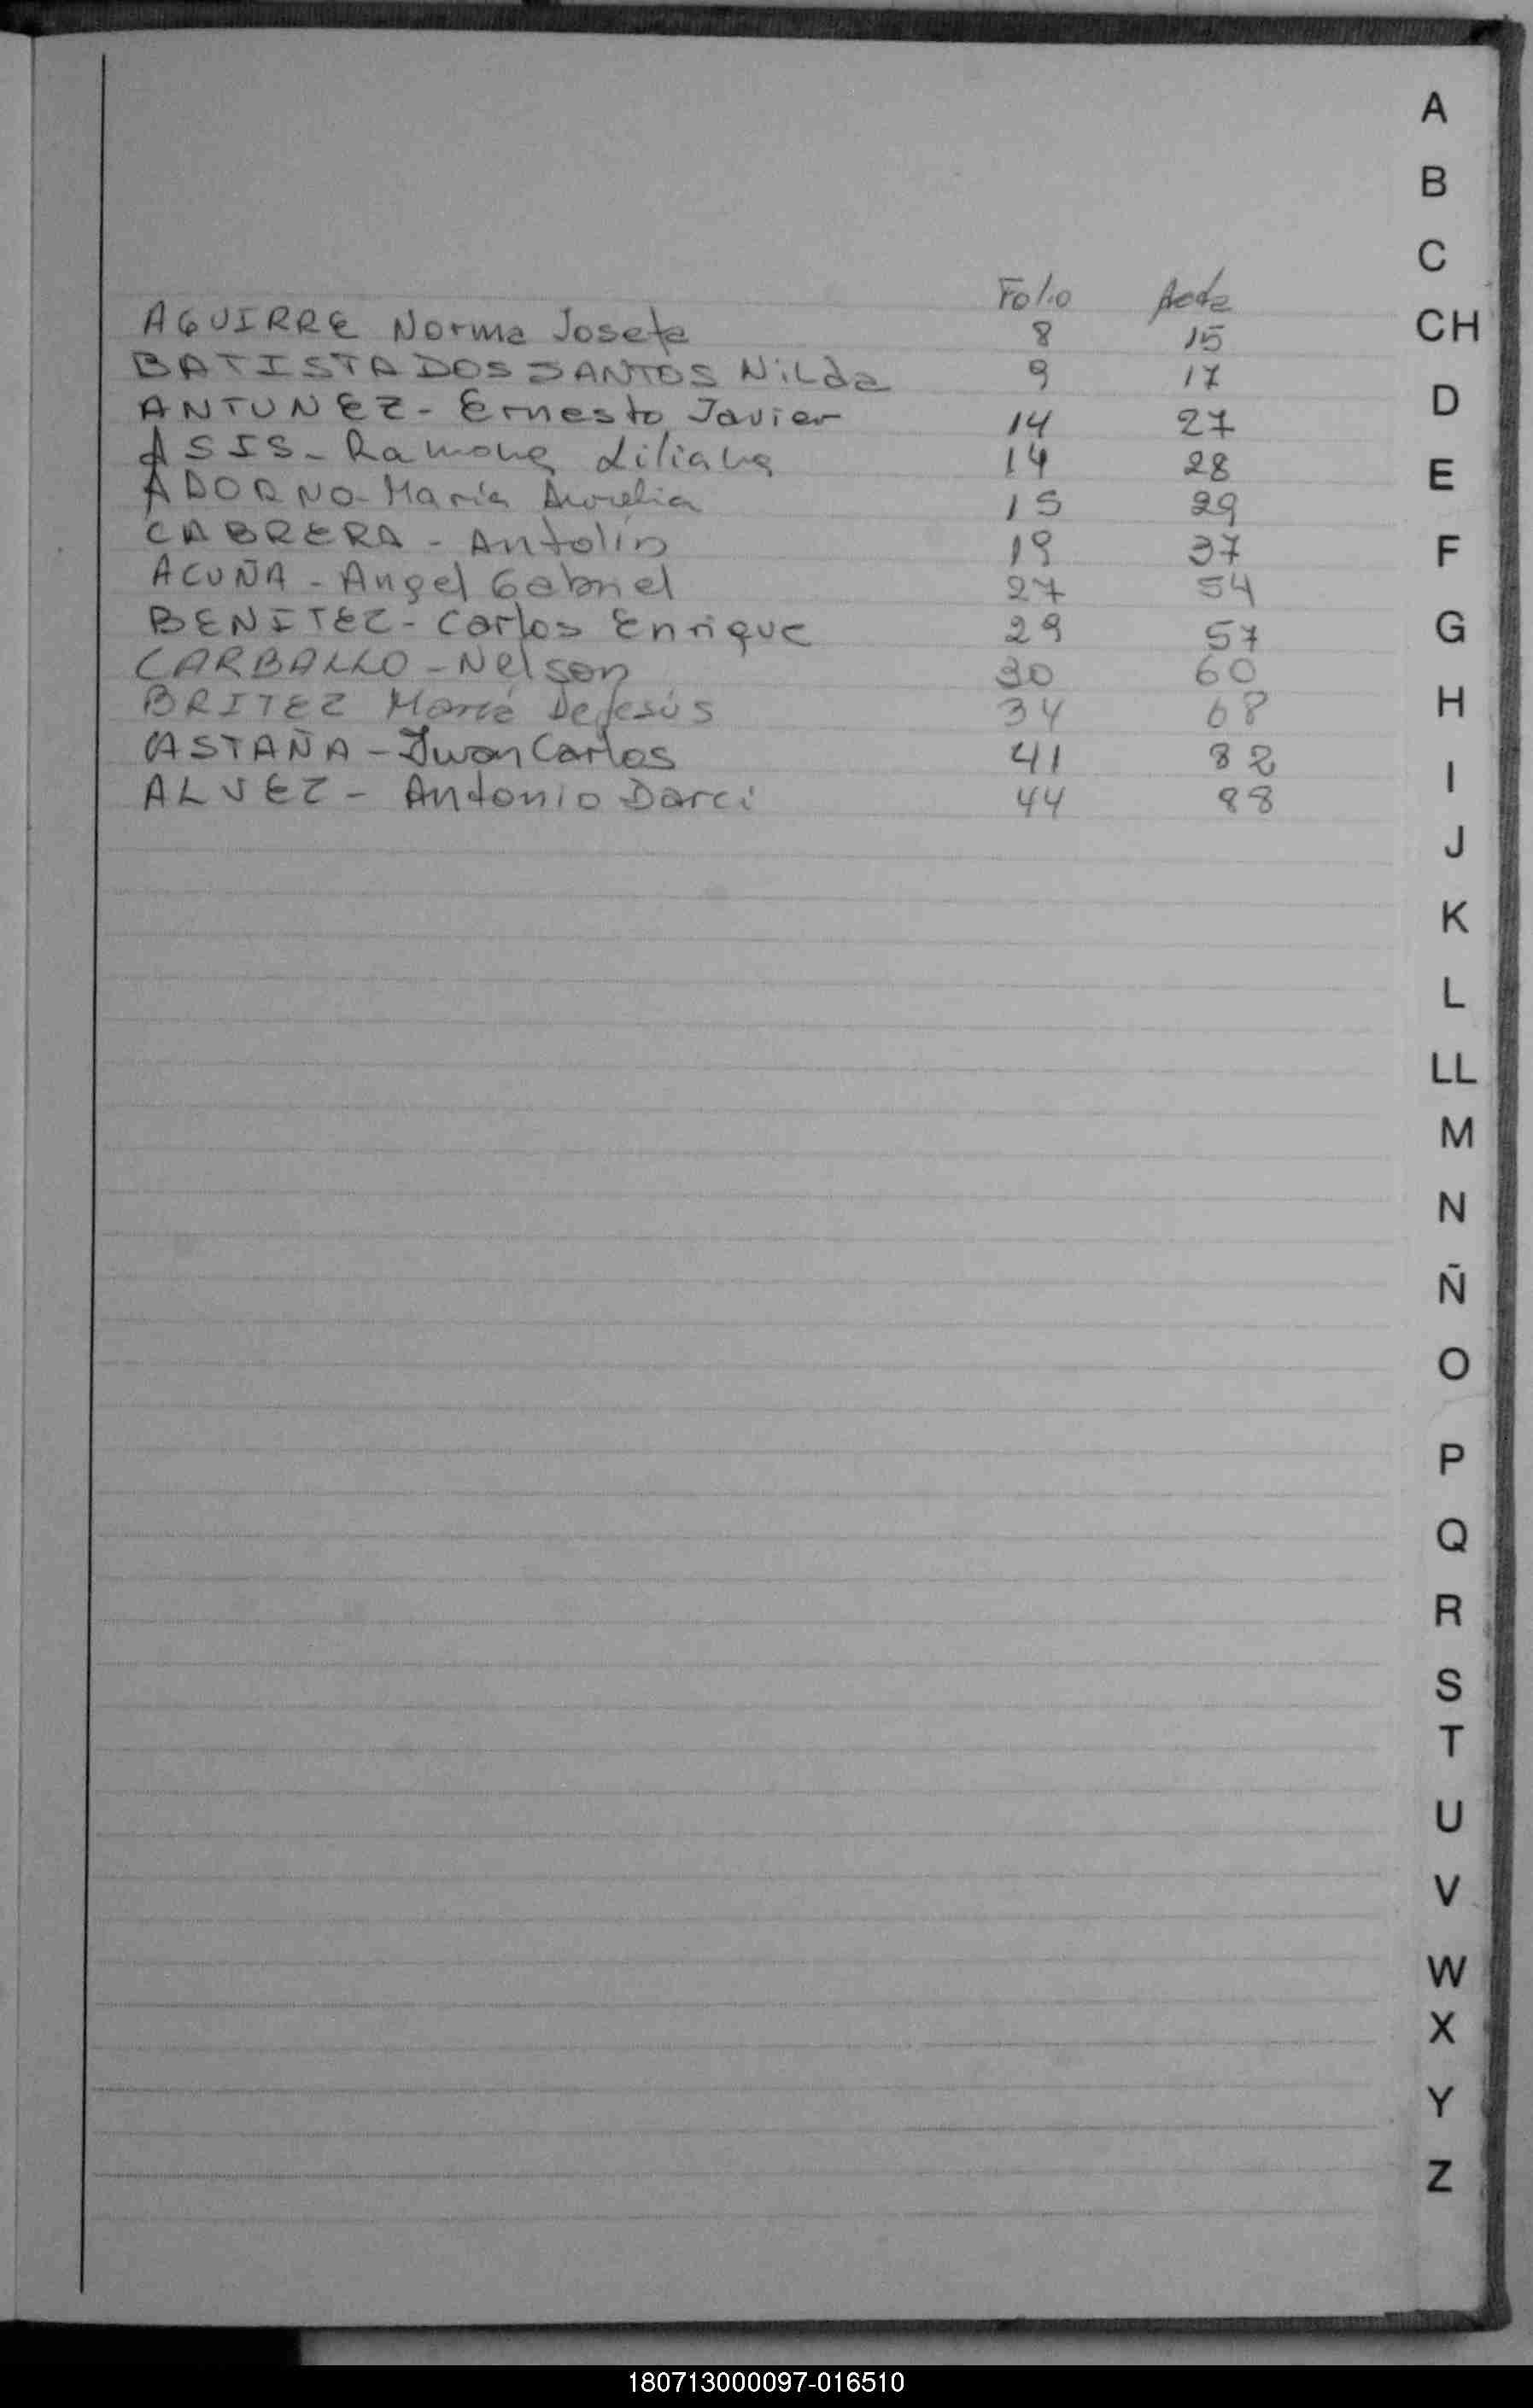 Folio Acta
AGUIRRE Norma Josefa 8 15
BATISTA DOS SANTOS Nilda 9 17
ANTUNEZ - Ernesto Javier 14 27
ASIS - Ramona Liliana 14 28
ADORNO - María Aurelia 15 29
CABRERA - Antolín 19 37
ACUÑA - Angel Gabriel 27 54
BENITEZ - Carlos Enrique 29 57
CARBALLO - Nelson 30 60
BRITEZ María De Jesús 34 68
CASTAÑA - Juan Carlos 41 82
ALVEZ - Antonio Darci 44 88
A
B
C
CH
D
E
F
G
H
I
J
K
L
LL
M
N
Ñ
O
P
Q
R
S
T
U
V
W
X
Y
Z
180713000097-016510